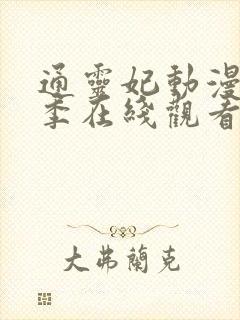 通靈妃動漫
季在綫觀看
大弗蘭克